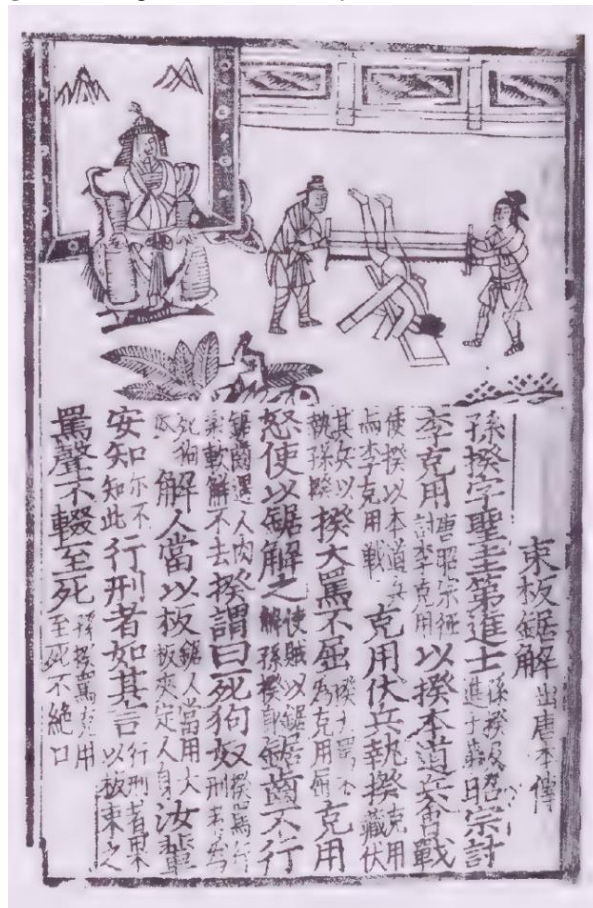 束板鋸解 出唐本傳
孫揆字聖圭第進士 孫揆及進士第 昭宗計
李克用 唐昭宗征討李克用 以揆本道兵曾戰
使揆以本道兵与李克用戰 克用伏兵執揆 克用藏伏
其兵以執孫揆 揆大罵不屈 揆大罵不爲克用屈 克用
怒使以鋸解之 使賊以鋸解孫揆身 鋸齒不行
鋸齒遇人肉柔軟解不去 揆謂曰死狗奴 揆怒罵行刑者爲
死狗奴 解人當以板 鋸人當用大板夾定人身 汝輩
安知 尔不知此 行刑者如其言 行刑者果以板束之
罵聲不輟至死 孫揆罵克用至死不絕口